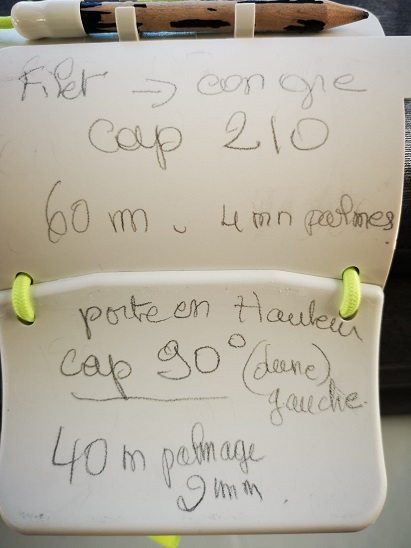 Filet → congre
cap 210
60 m. 4 mn palmes
porte en Hauteur
cap 90° (dune)
gauche.
40 m palmage
2 mm.